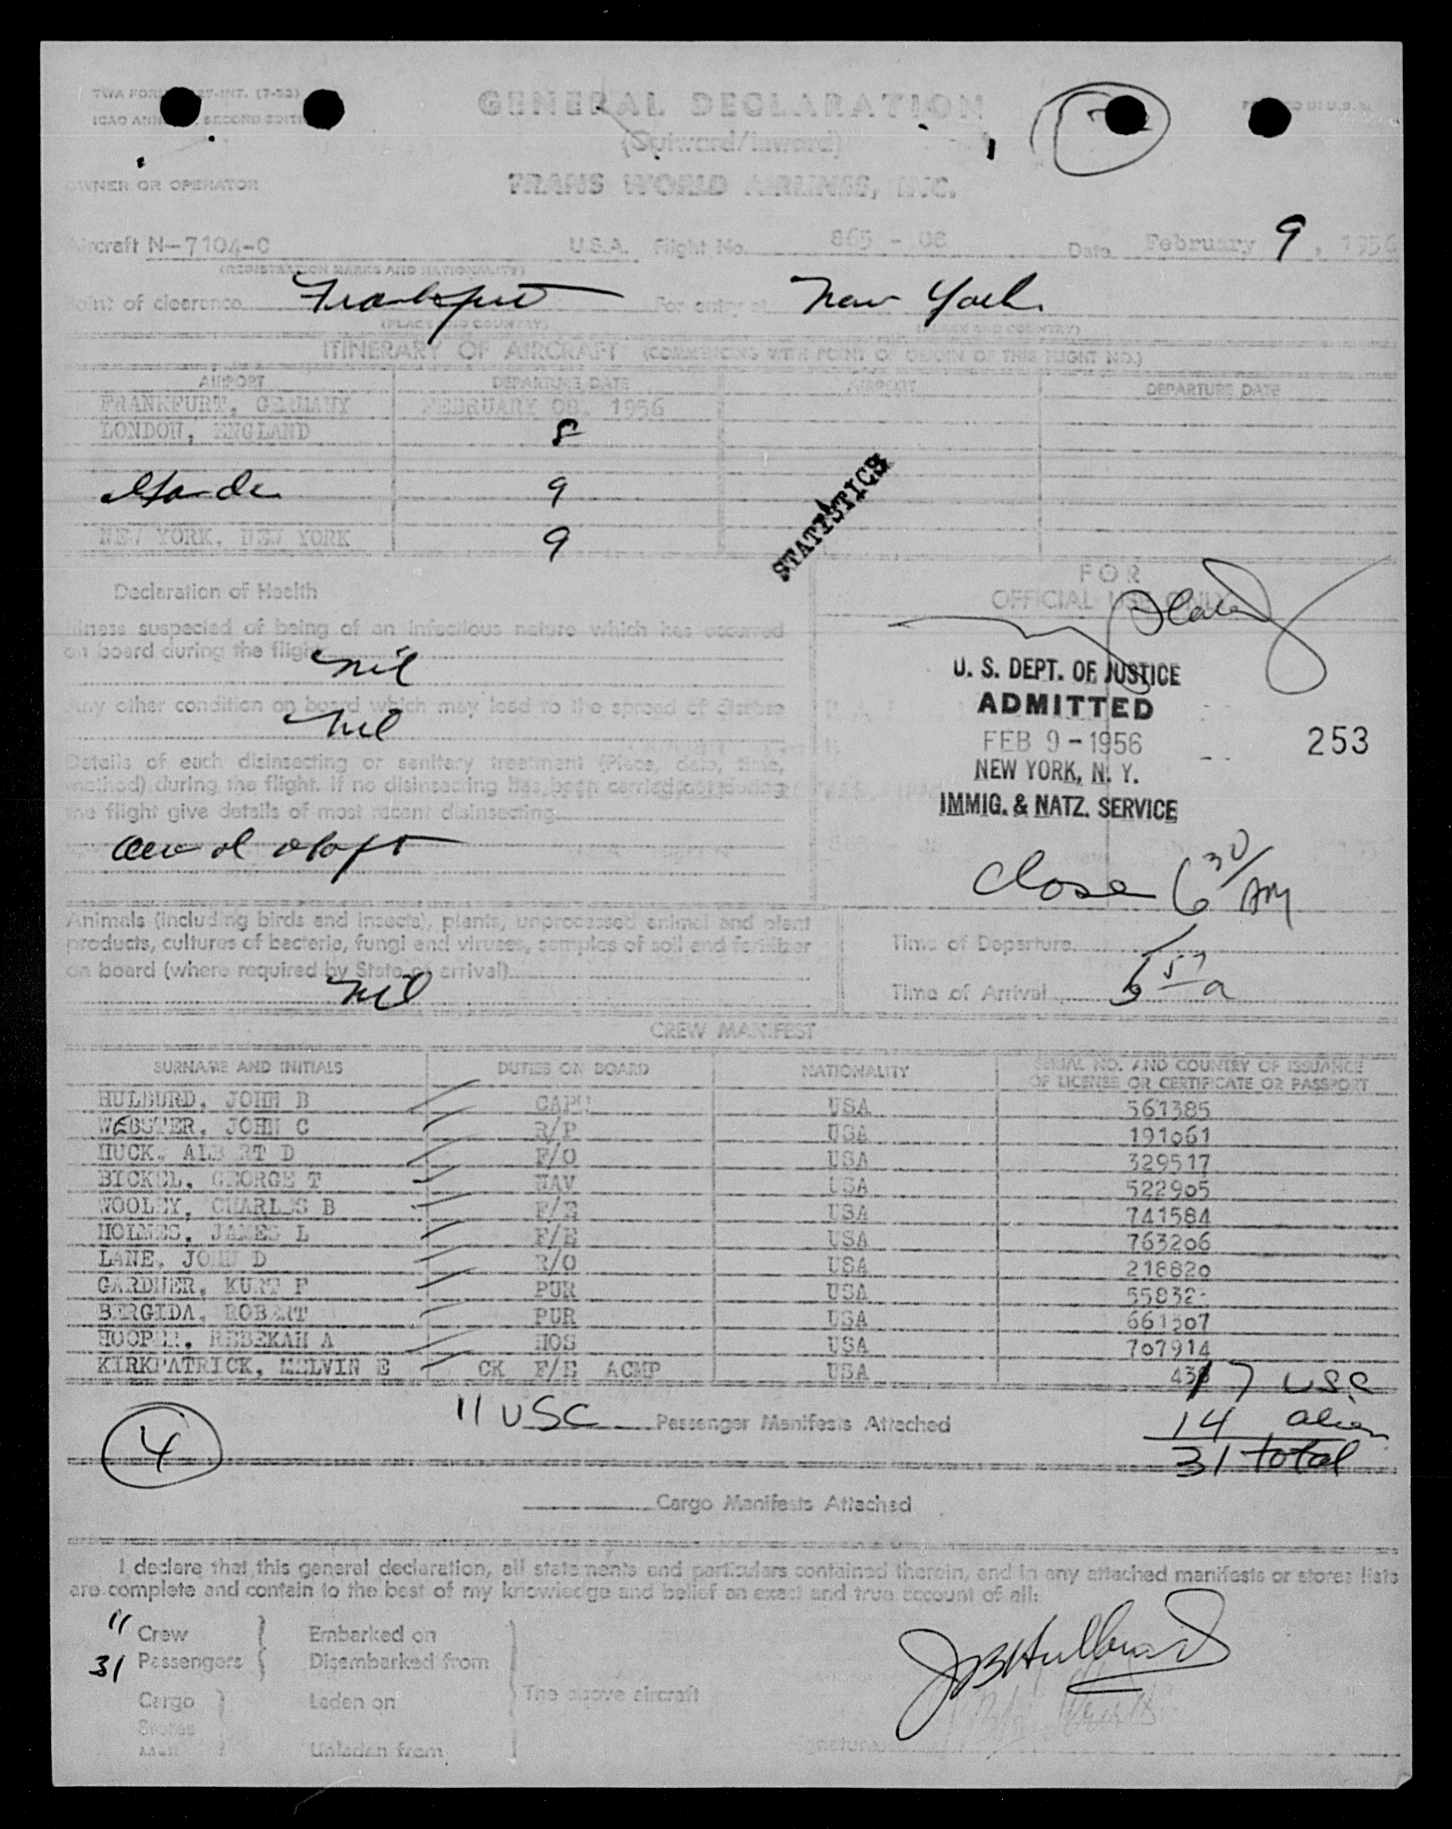 GENERAL DECLARATION
(Outward/Inward)
OWNER OR OPERATOR
TRANS WORLD AIRLINES, INC.
Aircraft N-7104-C U.S.A. Flight No. 865 - 08 Date February 9, 1956
(REGISTRATION MARKS AND NATIONALITY)
Point of clearance Frankfurt For entry at New York
(PLACE AND COUNTRY) (PLACE AND COUNTRY)
ITINERARY OF AIRCRAFT (COMMENCING WITH POINT OF ORIGIN OF THIS FLIGHT NO.)
AIRPORT DEPARTURE DATE AIRPORT DEPARTURE DATE
FRANKFURT, GERMANY FEBRUARY 08, 1956
LONDON, ENGLAND 8
9
NEW YORK, NEW YORK 9
STATISTICS
Declaration of Health
FOR
OFFICIAL USE ONLY
Illness suspected of being of an infectious nature which has occurred
on board during the flight
nil
Any other condition on board which may lead to the spread of disease
nil
Details of each disinsecting or sanitary treatment (Place, date, time,
method) during the flight. If no disinsecting has been carried out during
the flight give details of most recent disinsecting
U. S. DEPT. OF JUSTICE
ADMITTED
FEB 9 - 1956
NEW YORK, N. Y.
IMMIG. & NATZ. SERVICE
253
close 6 30/AM
Animals (including birds and insects), plants, unprocessed animal and plant
products, cultures of bacteria, fungi and viruses, samples of soil and fertilizer
on board (where required by State of arrival)
nil
Time of Departure
Time of Arrival
CREW MANIFEST
SURNAME AND INITIALS DUTIES ON BOARD NATIONALITY SERIAL NO. AND COUNTRY OF ISSUANCE
OF LICENSE OR CERTIFICATE OR PASSPORT
HULBURD, JOHN B CAPT USA 561385
WEBSTER, JOHN C R/P USA 191061
HUCK, ALBERT D F/O USA 329517
BICKEL, GEORGE T NAV USA 522905
WOOLEY, CHARLES B F/E USA 741584
HOLMES, JAMES L F/E USA 763206
LANE, JOHN D R/O USA 218820
GARDNER, KURT F PUR USA 55832
BERGIDA, ROBERT PUR USA 661307
HOOPER, REBEKAH A HOS USA 707914
KIRKPATRICK, MELVIN E CK F/E ACMP USA
17 USC
11 USC Passenger Manifests Attached
14 alien
31 total
4
Cargo Manifests Attached
I declare that this general declaration, all statements and particulars contained therein, and in any attached manifests or stores lists
are complete and contain to the best of my knowledge and belief an exact and true account of all:
11 Crew Embarked on
31 Passengers Disembarked from
Cargo Laden on The above aircraft
Stores
Mail Unladen from
JBHulburd
Signature